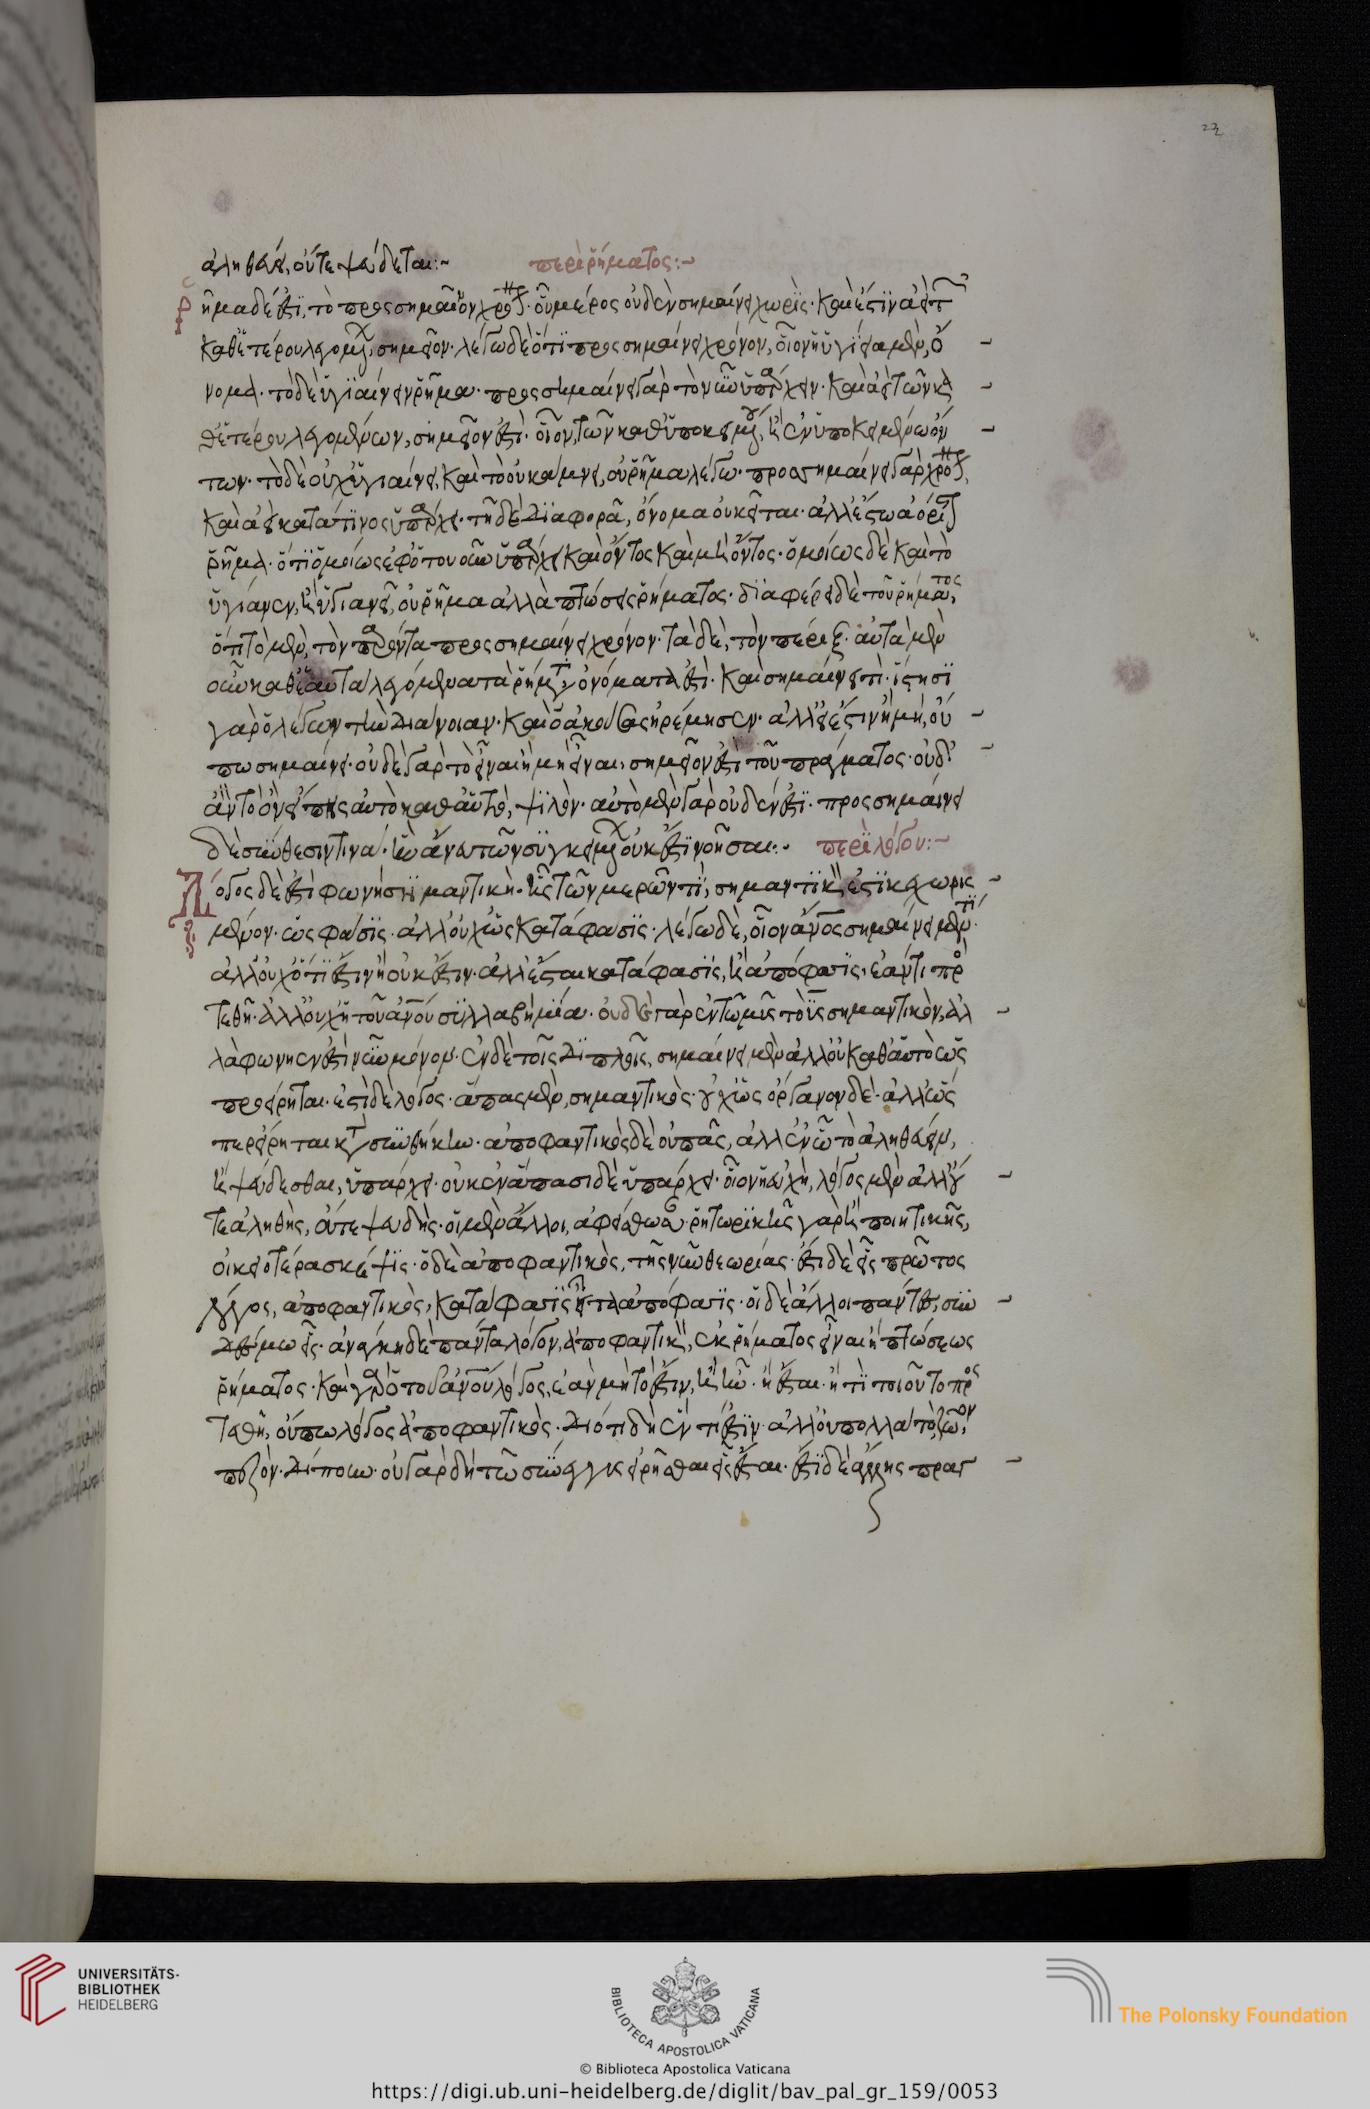 ἀληθεύει, οὔτε ψεύδεται:~ περὶ ῥήματος:~
ῥῆμα δέ ἐστι, τὸ προσσημαῖνον χρόνον· οὗ μέρος οὐδὲν σημαίνει χωρίς· καὶ ἔστιν ἀεὶ τῶν
καθ' ἑτέρου λεγομένων, σημεῖον· λέγω δὲ ὅτι προσσημαίνει χρόνον, οἷον ἡ ὑγίεια μὲν, ὄ
νομα· τὸ δὲ ὑγιαίνειν ῥῆμα· προσσημαίνει γὰρ τὸ νῦν ὑπάρχειν· καὶ ἀεὶ τῶν κα
θ' ἑτέρου λεγομένων, σημεῖόν ἐστι· οἷον, τῶν καθ' ὑποκειμένου, ἢ ἐν ὑποκειμένω ὄν
των· τὸ δὲ οὐχ ὑγιαίνει, καὶ τὸ οὐ κάμνει, οὐ ῥῆμα λέγω· προσσημαίνει γὰρ χρόνον,
καὶ ἀεὶ κατά τινος ὑπάρχει· τῆ δὲ διαφορᾶ, ὄνομα οὐ κεῖται· ἀλλ' ἔστω ἀόριστον
ῥῆμα· ὅτι ὁμοίως ἐφ' ὁτουοῦν ὑπάρχει καὶ ὄντος καὶ μὴ ὄντος· ὁμοίως δὲ καὶ τὸ
ὑγίανεν, ἢ ὑγιανεῖ, οὐ ῥῆμα ἀλλὰ πτώσεις ῥήματος· διαφέρει δὲ τοῦ ῥήματος,
ὅτι τὸ μὲν, τὸν παρόντα προσσημαίνει χρόνον· τὰ δὲ, τὸν πέριξ· αὐτὰ μὲν
οὖν καθ' ἑαυτὰ λεγόμενα τὰ ῥήματα, ὀνόματά ἐστι· καὶ σημαίνει τι· ἵστησι
γὰρ ὁ λέγων τὴν διάνοιαν· καὶ ὁ ἀκούσας ἠρέμησεν· ἀλλ' εἰ ἔστιν ἢ μὴ, οὔ
πω σημαίνει· οὐδὲ γὰρ τὸ εἶναι ἢ μὴ εἶναι, σημεῖόν ἐστι τοῦ πράγματος· οὐδ'
ἂν τὸ ὂν εἴπης αὐτὸ καθ' αὑτὸ, ψιλόν· αὐτὸ μὲν γὰρ οὐδέν ἐστι· προσσημαίνει
δὲ σύνθεσιν τινά· ἣν ἄνευ τῶν συγκειμένων οὐκ ἔστι νοῆσαι:· περὶ λόγου:~
Λόγος δέ ἐστι φωνὴ σημαντική· ἧς τῶν μερῶν τι, σημαντικόν ἐστι κεχωρισ
μένον· ὡς φάσις· ἀλλ' οὐχ ὡς κατάφασις· λέγω δὲ, οἷον ἄνθρωπος σημαίνει μέν τι·
ἀλλ' οὐχ ὅτι ἔστιν ἢ οὐκ ἔστιν· ἀλλ' ἔσται κατάφασις, ἢ ἀπόφασις, ἐάν τι προσ
τεθῆ· ἀλλ' οὐχ ἡ τοῦ ἀνθρώπου συλλαβὴ μία· οὐδὲ γὰρ ἐν τῶ μῦς τὸ ϋς σημαντικόν, ἀλ
λὰ φωνή ἐστι νῦν μόνον· ἐν δὲ τοῖς διπλοῖς, σημαίνει μὲν ἀλλ' οὐ καθ' αὑτὸ ὡς
προείρηται· ἔστι δὲ λόγος· ἅπας μὲν, σημαντικός· οὐχ ὡς ὄργανον δέ· ἀλλ' ὥς
περ εἴρηται κατὰ συνθήκην· ἀποφαντικὸς δὲ οὐ πᾶς, ἀλλ' ἐν ὧ τὸ ἀληθεύειν,
ἢ ψεύδεσθαι, ὑπάρχει· οὐκ ἐν ἅπασι δὲ ὑπάρχει· οἷον ἡ εὐχὴ, λόγος μὲν ἀλλ' οὔ
τε ἀληθὴς, οὔτε ψευδής· οἱ μὲν ἄλλοι, ἀφείσθωσαν· ῥητορικῆς γὰρ ἢ ποιητικῆς,
οἰκειοτέρα σκέψις· ὁ δὲ ἀποφαντικὸς, τῆς νῦν θεωρίας· ἔστι δὲ εἷς πρῶτος
λόγος, ἀποφαντικὸς, κατάφασις εἶτα ἀπόφασις· οἱ δὲ ἄλλοι πάντες, συν
δέσμω εἷς· ἀνάγκη δὲ πάντα λόγον, ἀποφαντικὸν, ἐκ ῥήματος εἶναι ἢ πτώσεως
ῥήματος· καὶ γὰρ ὁ τοῦ ἀνθρώπου λόγος, ἐὰν μὴ τὸ ἔστιν, ἢ ἦν· ἢ ἔσται· ἤ τι τοιοῦτο προσ
τεθῆ, οὔπω λόγος ἀποφαντικός· διότι δὴ ἕν τί ἐστιν· ἀλλ' οὐ πολλὰ τὸ ζῶον,
πεζὸν δίπουν· οὐ γὰρ δὴ τῶ σύνεγγυς εἰρῆσθαι εἷς ἔσται· ἔστι δὲ ἄλλης πραγ